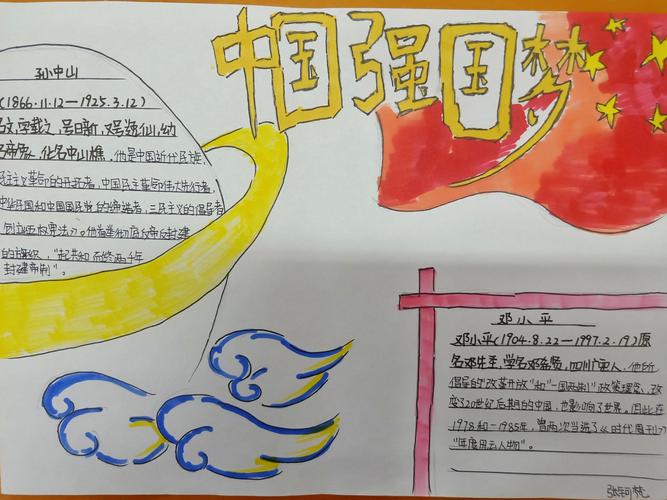 中国强国梦
孙中山
(1866.11.12—1925.3.12)
名文,字载之,号日新,又号逸仙,幼
名帝象,化名中山樵,他是中国近代民族
民主主义革命的开拓者,中国民主革命伟大先行者,
中华民国和中国国民党的缔造者,三民主义的倡导者
创立五权宪法》。他首举彻底反帝反封建
的旗帜,"起共和而终两千年
封建帝制"。
邓小平
邓小平(1904.8.22—1997.2.19)原
名邓先圣,学名邓希贤,四川广安人,他所
倡导的"改革开放"和"一国两制"政策理念,改
变了20世纪后期的中国,也影响了世界。因此在
1978和1985年,曾两次当选了《时代周刊》
"年度风云人物"。